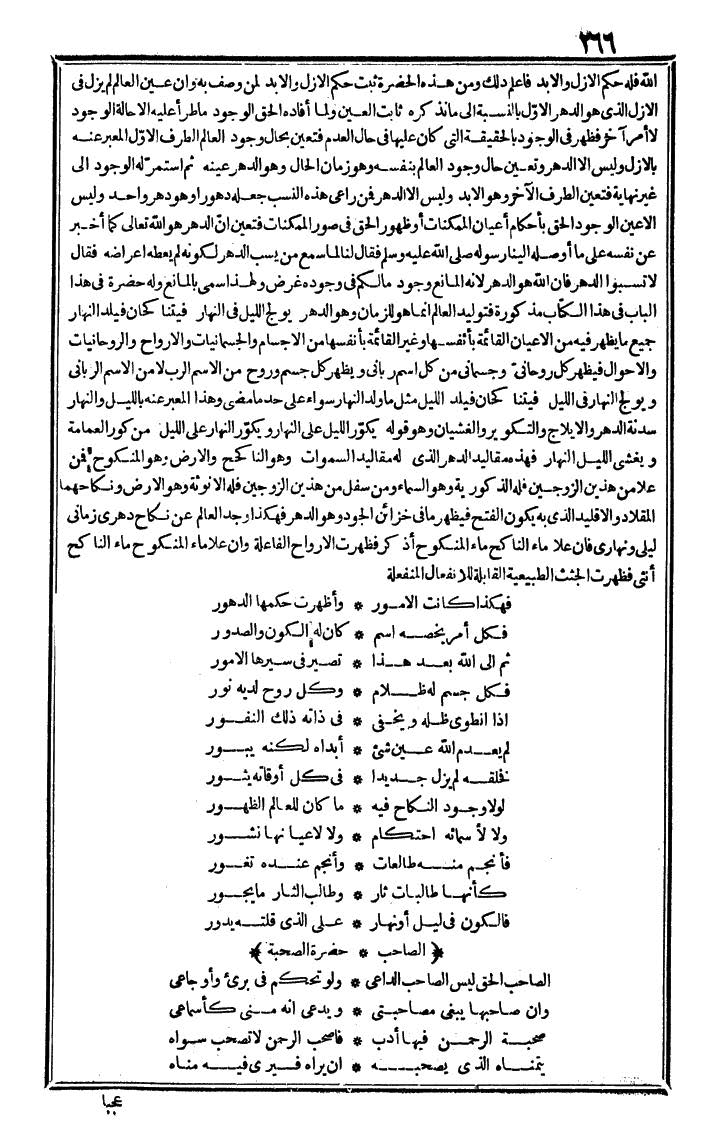 ٣٦٦
الله فله حكم الازل والابد فاعلم ذلك ومن هذه الحضرة ثبت حكم الازل والابد لمن وصف به وان عين العالم لم يزل فى
الازل الذى هو الدهر الاول بالنسبة الى ما نذكره ثابت العين ولما أفاده الحق الوجود ما طرأ عليه الا حالة الوجود
لا أمر آخر فظهر فى الوجود بالحقيقة التى كان عليها فى حال العدم فتعين بحال وجود العالم الطرف الاول المعبر عنه
بالازل وليس الا الدهر وتعين حال وجود العالم بنفسه وهو زمان الحال وهو الدهر عينه ثم استمر له الوجود الى
غير نهاية فتعين الطرف الآخر وهو الابد وليس الا الدهر فمن راعى هذه النسب جعله دهورا وهو دهر واحد وليس
الا عين الوجود الحق بأحكام أعيان الممكنات أو ظهور الحق فى صور الممكنات فتعين ان الدهر هو الله تعالى كما أخبر
عن نفسه على ما أوصله الينا رسوله صلى الله عليه وسلم فقال لنا لما سمع من يسب الدهر لكونه لم يعطه اعراضه فقال
لا تسبوا الدهر فان الله هو الدهر لانه المانع وجود مالكم فى وجوده غرض ولهذا سمى بالمانع وله حضرة فى هذا
الباب فى هذا الكتاب مذكورة فتوليد العالم انما هو للزمان وهو الدهر يولج الليل فى النهار فيتناكحان فيلد النهار
جميع ما يظهر فيه من الاعيان القائمة بأنفسها وغير القائمة بأنفسها من الاجسام والجسمانيات والارواح والروحانيات
والاحوال فيظهر كل روحانى وجسمانى من كل اسم ربانى ويظهر كل جسم وروح من الاسم الرب لا من الاسم الربانى
ويولج النهار فى الليل فيتناكحان فيلد الليل مثل ما ولد النهار سواء على حد ما مضى وهذا المعبر عنه بالليل والنهار
سدنة الدهر والايلاج والتكوير والغشيان وهو قوله يكوّر الليل على النهار ويكوّر النهار على الليل من كور العمامة
ويغشى الليل النهار فهذه مقاليد الدهر الذى له مقاليد السموات وهو الناكح والارض وهو المنكوح فمن
علا من هذين الزوجين فله الذكورية وهو السماء ومن سفل من هذين الزوجين فله الانوثة وهو الارض ونكاحهما
المقلاد والاقليد الذى به يكون الفتح فيظهر ما فى خزائن الجود وهو الدهر فهكذا وجد العالم عن نكاح دهرى زمانى
ليلى ونهارى فان علا ماء الناكح ماء المنكوح أذكر فظهرت الارواح الفاعلة وان علا ماء المنكوح ماء الناكح
أنثى فظهرت الجثث الطبيعية القابلة للانفعال المنفعلة
فهكذا كانت الامور * وأظهرت حكمها الدهور
فكل أمر يخصه اسم * كان له الكون والصدور
ثم الى الله بعد هذا * تصير فى سيرها الامور
فكل جسم له ظلام * وكل روح لديه نور
اذا انطوى ظله ويخفى * فى ذاته ذلك النفور
لم يعدم الله عين شئ * أبداه لكنه يبور
فخلقه لم يزل جديدا * فى كل أوقاته يثور
لولا وجود النكاح فيه * ما كان للعالم الظهور
ولا لأسمائه احتكام * ولا لاعيانها نشور
فأنجم منه طالعات * وأنجم عنده تغور
كأنها طالبات ثار * وطالب الثار ما يجور
فالكون فى ليل أو نهار * على الذى قلته يدور
﴿ الصاحب * حضرة الصحبة ﴾
الصاحب الحق ليس الصاحب الداعى * ولو تحكم فى برئ وأوجاعى
وان صاحبها يبغى مصاحبتى * ويدعى انه منى كأسماعى
صحبة الرحمن فيها أدب * فاصحب الرحمن لا تصحب سواه
يتمناه الذى يصحبه * ان يراه فيرى فيه مناه
عجبا